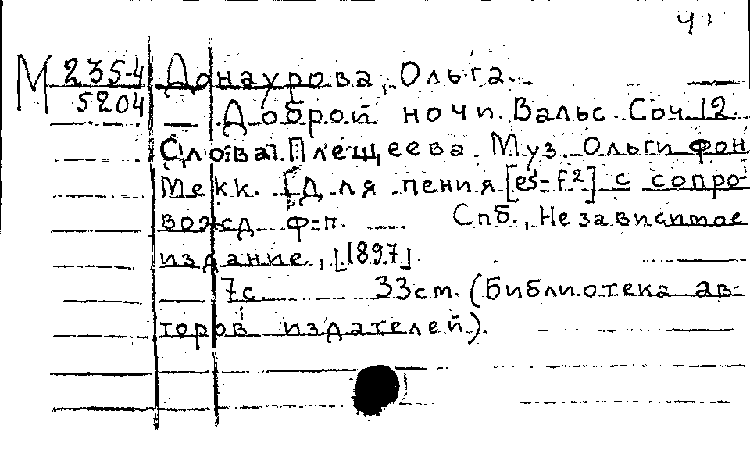 ч
М 235-4 Донаурова, Ольга.
5204 — Доброй ночи. Вальс. Соч. 12.
Слова Плещеева. Муз. Ольги фон
Мекк. [Для пения [es-f2] с сопро-
вожд. ф-п. Спб., Независимое
издание, [1897].
7с. 33см. (Библиотека ав-
торов издателей).